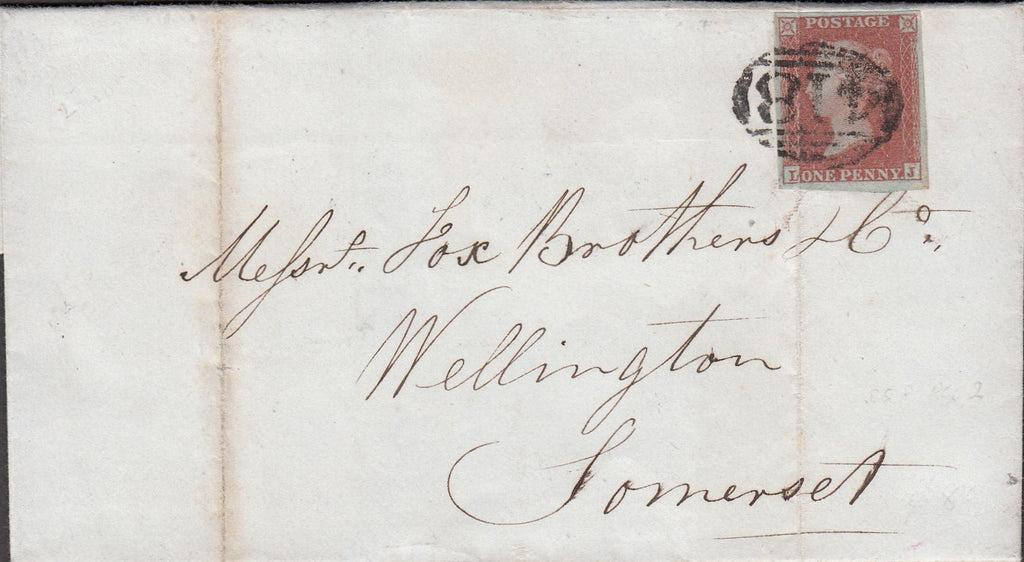 POSTAGE
L ONE PENNY J
Messrs. Fox Brothers & Co.
Wellington
Somerset